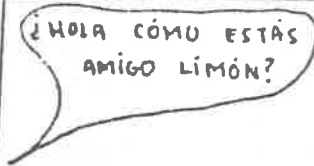 ¿HOLA CÓMU ESTÁS
AMIGO LIMÓN?